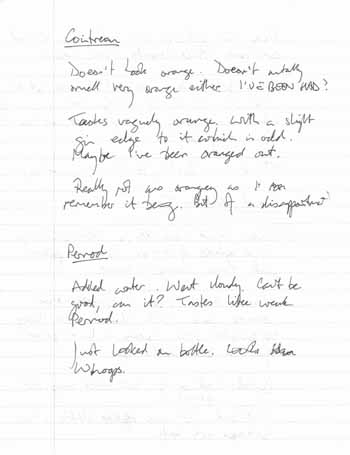 Cointreau
Doesn't look orange. Doesn't actually
smell very orange either. I'VE BEEN HAD?
Tastes vaguely orange, with a slight
gin edge to it which is odd.
Maybe I've been oranged out.
Really not as orangey as I
remember it being. Bit of a disappointment
Pernod
Added water. Went cloudy. Can't be
good, can it? Tastes like weak
Pernod.
Just looked on bottle.
Whoops.